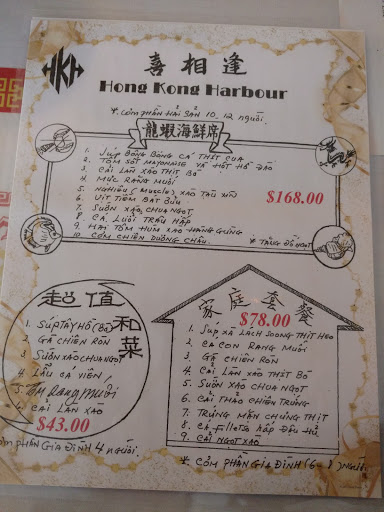 HKH
喜相逢
Hong Kong Harbour
* CƠM PHẦN HẢI SẢN 10. 12 NGƯỜI.
龍蝦海鮮席
1. SÚP BÔNG BÓNG CÁ THỊT CUA
2. TÔM SỐT MAYONAISE VÀ HỘT HỒ ĐÀO
3. CẢI LÀN XÀO THỊT BÒ
4. MỰC RANG MUỐI
5. NGHIÊU (MUSSLE) XÀO TÀU XÌN
6. VỊT TIỀM BÁT BỬU
7. SƯỜN XÀO CHUA NGỌT
8. CÁ LƯỠI TRÂU HẤP
9. HAI TÔM HÙM XÀO HÀNH GỪNG
10. CƠM CHIÊN DƯƠNG CHÂU
$168.00
* TẶNG ĐỒ NGỌT
超值和菜
1. SÚP TÂY HỒ (BÒ)
2. GÀ CHIÊN RÒN
3. SƯỜN XÀO CHUA NGỌT
4. LẨU CÁ VIÊN
5. Rang Muối
6. CẢI LÀN XÀO
$43.00
CƠM PHẦN GIA ĐÌNH 4 NGƯỜI.
家庭套餐
$78.00
1. SÚP XÀ LÁCH SOONG THỊT HEO
2. CÁ CƠN RANG MUỐI
3. GÀ CHIÊN RÒN
4. CẢI LÀN XÀO THỊT BÒ
5. SƯỜN XÀO CHUA NGỌT
6. CẢI THẢO CHIÊN TRỨNG
7. TRỨNG MẶN CHƯNG THỊT
8. CÁ Fillets hấp ĐẬU HỦ
9. CẢI NGỌT XÀO
* CƠM PHẦN GIA ĐÌNH (6-8) NGƯỜI.